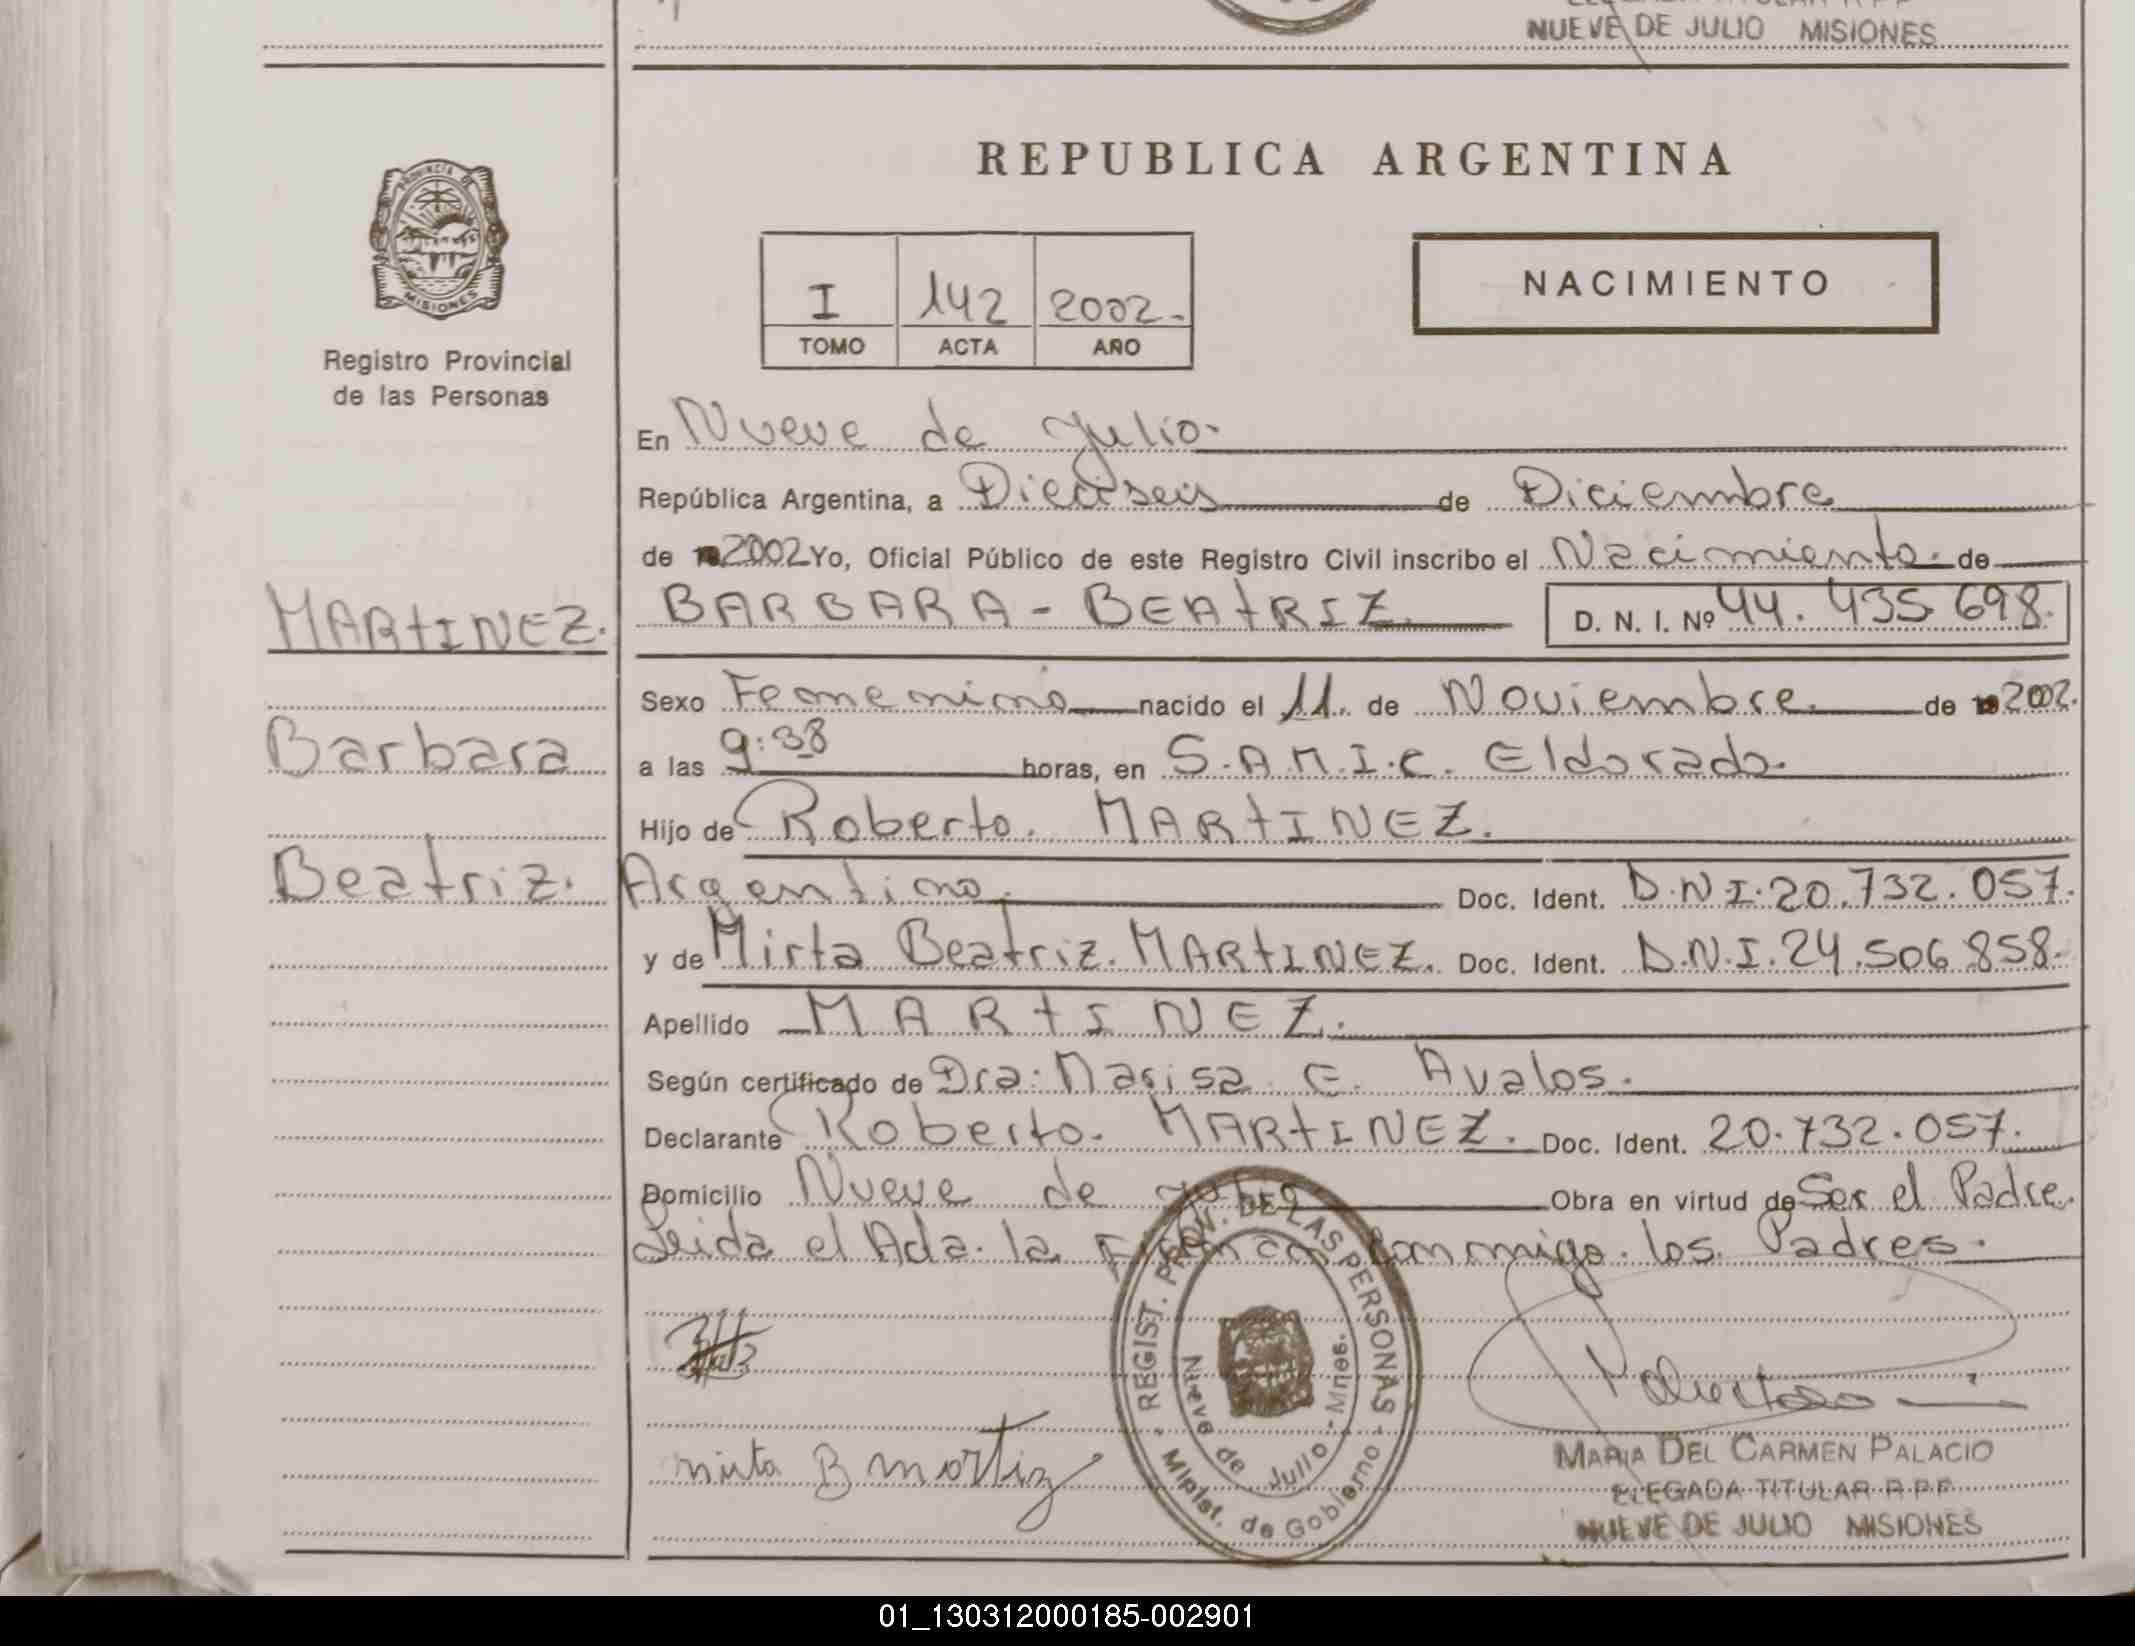 NUEVE DE JULIO MISIONES
PROVINCIA DE
MISIONES
Registro Provincial
de las Personas
MARTINEZ.
Barbara
Beatriz.
REPUBLICA ARGENTINA
I 142 2002.-
TOMO ACTA AÑO
NACIMIENTO
En Nueve de Julio.
República Argentina, a Dieciseis de Diciembre
de 2002 Yo, Oficial Público de este Registro Civil inscribo el Nacimiento. de
BARBARA - BEATRIZ. D. N. I. Nº 44. 435 698.
Sexo Femenino nacido el 11. de Noviembre. de 2002.
a las 9:38 horas, en S.A.M.I.C. Eldorado.
Hijo de Roberto. MARTINEZ.
Argentino. Doc. Ident. D.N.I.20.732.057.
y de Mirta Beatriz. MARTINEZ. Doc. Ident. D.N.I.24.506.858.
Apellido MARTINEZ.
Según certificado de Dra: Marisa E. Avalos.
Declarante Roberto. MARTINEZ. Doc. Ident. 20.732.057.
Domicilio Nueve de Julio Obra en virtud de Ser el Padre.
Leida el Acta. la Firman conmigo. los Padres.
REGIST. PROV. DE LAS PERSONAS
Nueve de Julio - Mnes.
Minist. de Gobierno
mirta B martinz
MARIA DEL CARMEN PALACIO
DELEGADA TITULAR R.P.P.
NUEVE DE JULIO MISIONES
01_130312000185-002901